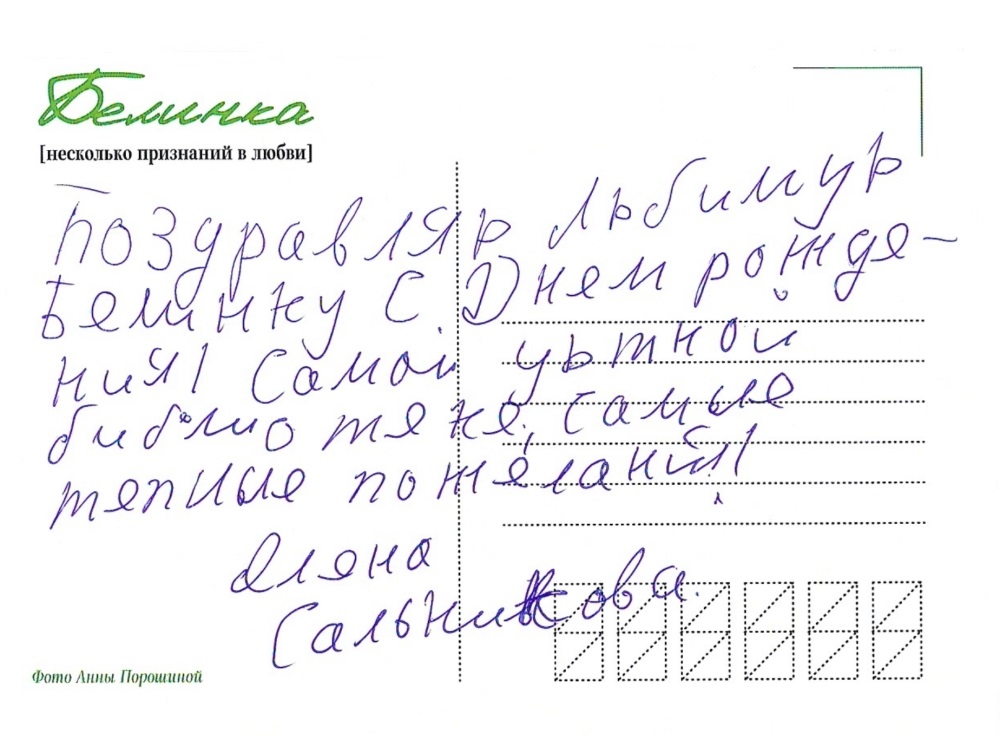 Белинка
[несколько признаний в любви]
Поздравляю любимую
Белинку С Днем рожде-
ния! Самой уютной
библиотеке, самые
теплые пожелания!
Алена
Сальникова.
Фото Анны Порошиной